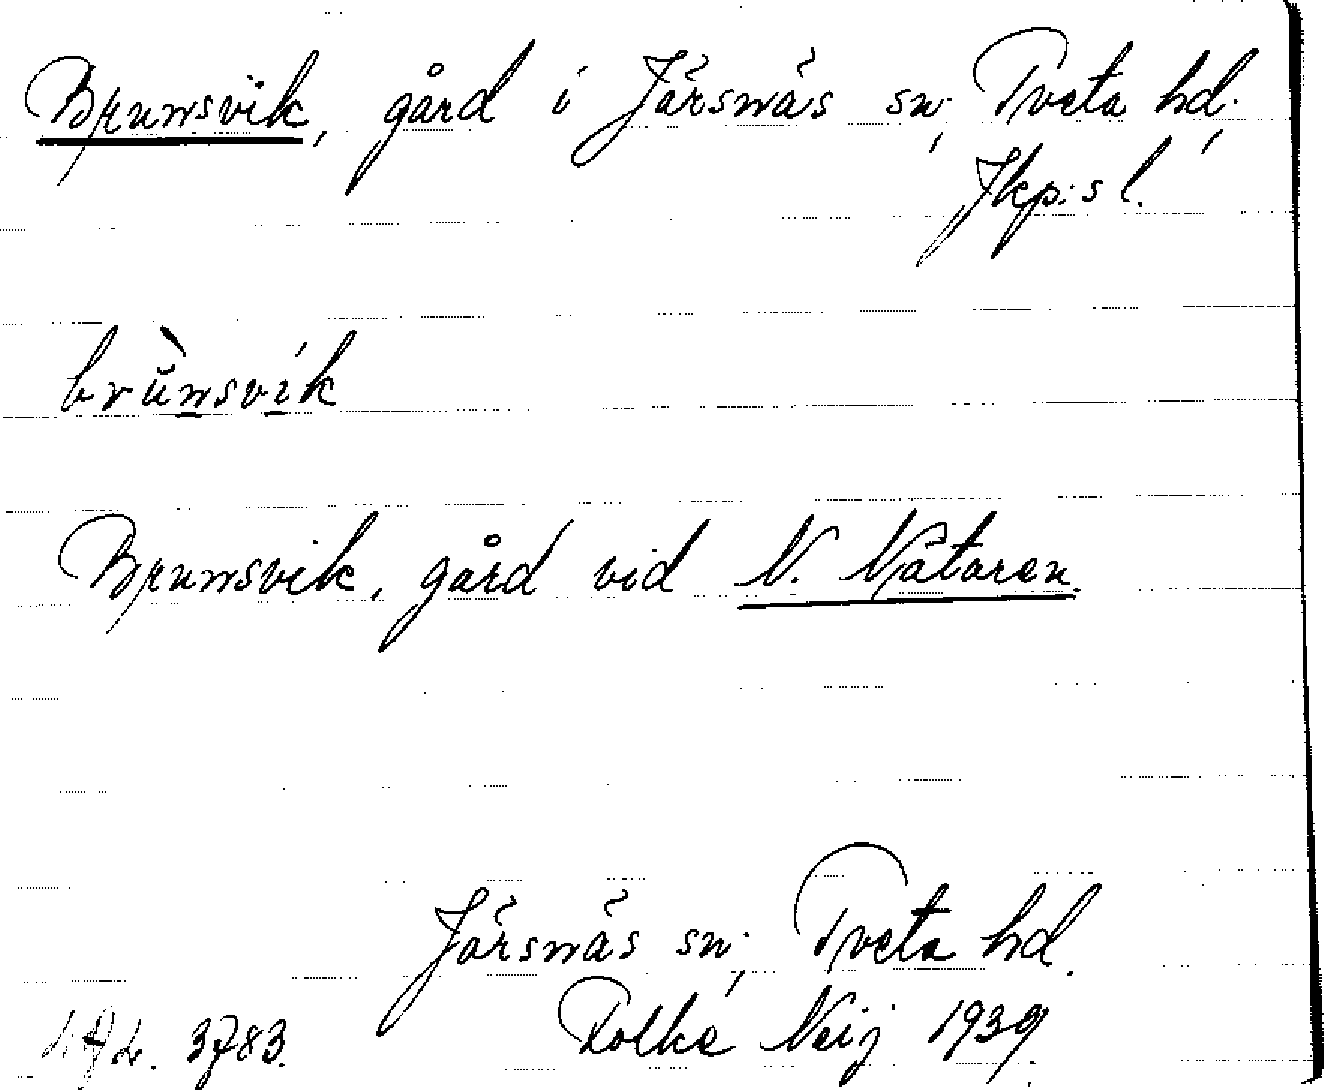 Brunsvik, gård i Järsnäs sn, Tveta hd.,
Jkp:s l.
brùnsvík
Brunsvik, gård vid N. Nätaren.
Järsnäs sn, Tveta hd.
3783. Folke Neij 1939.